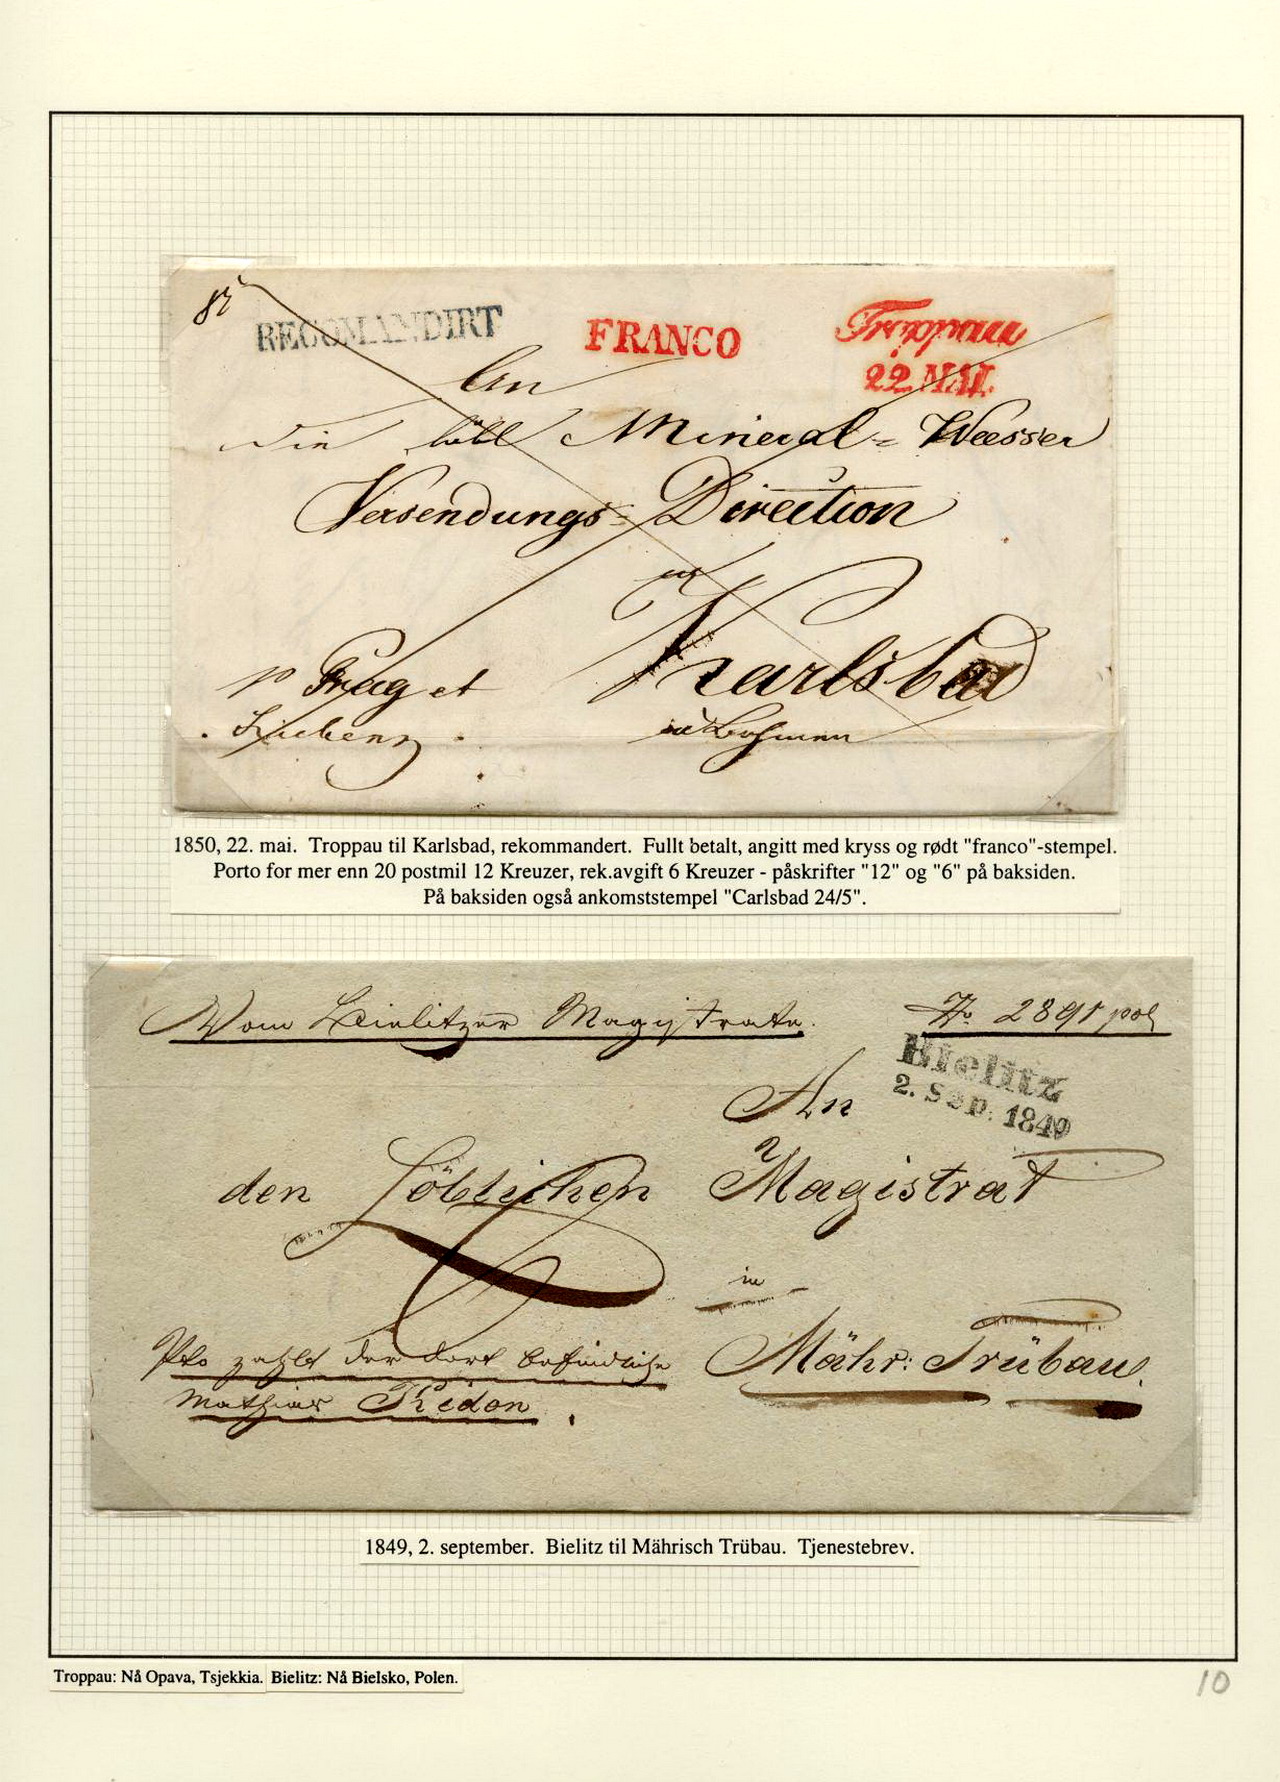 RECOMANDIRT
FRANCO
Troppau
22. MAI.
An
löbl Mineral= Wasser
Versendungs= Direction
in
Karlsbad
in Böhmen
p Prag et
1850, 22. mai. Troppau til Karlsbad, rekommandert. Fullt betalt, angitt med kryss og rødt "franco"-stempel.
Porto for mer enn 20 postmil 12 Kreuzer, rek.avgift 6 Kreuzer - påskrifter "12" og "6" på baksiden.
På baksiden også ankomststempel "Carlsbad 24/5".
Vom Bielitzer Magistrate.
2891 pol
Bielitz
2. Sep: 1849
An
den Löblichen Magistrat
in
Mähr: Trübau.
Pto zahlt der dort befindliche
Mathias
1849, 2. september. Bielitz til Mährisch Trübau. Tjenestebrev.
Troppau: Nå Opava, Tsjekkia. Bielitz: Nå Bielsko, Polen.
10